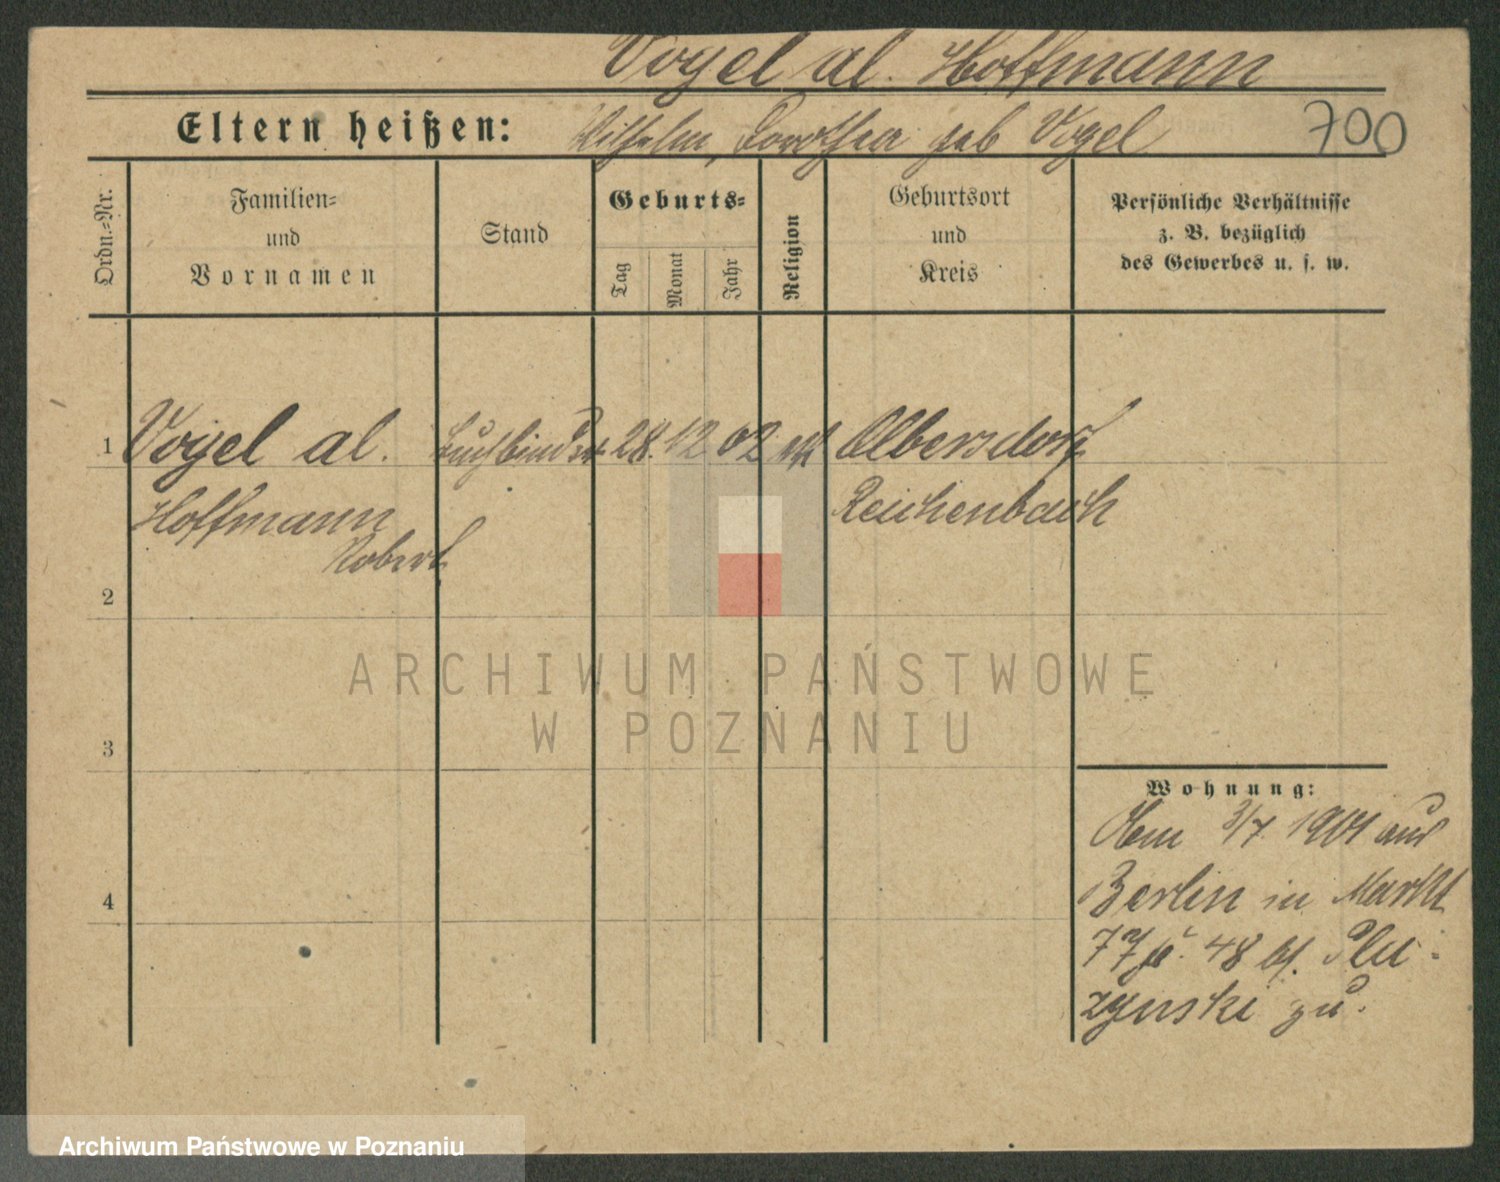 Vogel al. Hoffmann
Eltern heißen: Wilhelm, Dorothea geb Vogel 700
Ordn.=Nr.
Familien=
und
Vornamen
Stand
Geburts=
Tag
Monat
Jahr
Religion
Geburtsort
und
Kreis
Persönliche Verhältnisse
z. B. bezüglich
des Gewerbes u. s. w.
1 Vogel al. Buchbinder 28. 12 02 Olbersdorf
Hoffmann Reichenbach
Robert
2
ARCHIWUM PAŃSTWOWE
W POZNANIU
3
Wohnung:
Am 3/7 1901 aus
Berlin in Markt
4
77 48 bf. Plu-
zynski zu.
Archiwum Państwowe w Poznaniu